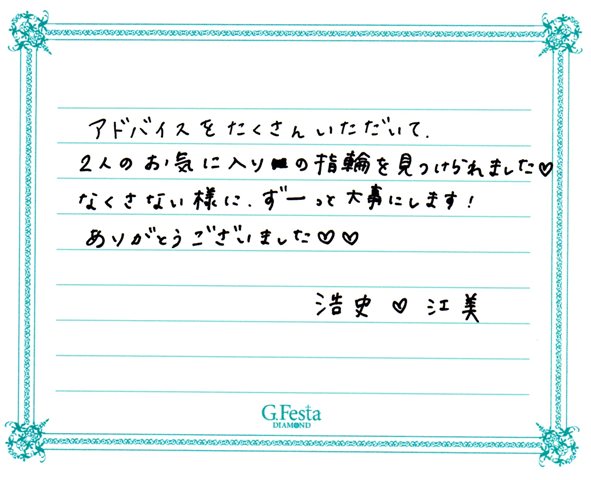 アドバイスをたくさんいただいて、
2人のお気に入りの指輪を見つけられました♡
なくさない様に、ずーっと大事にします！
ありがとうございました♡♡
浩史 ♡ 江美
G.Festa
DIAMOND